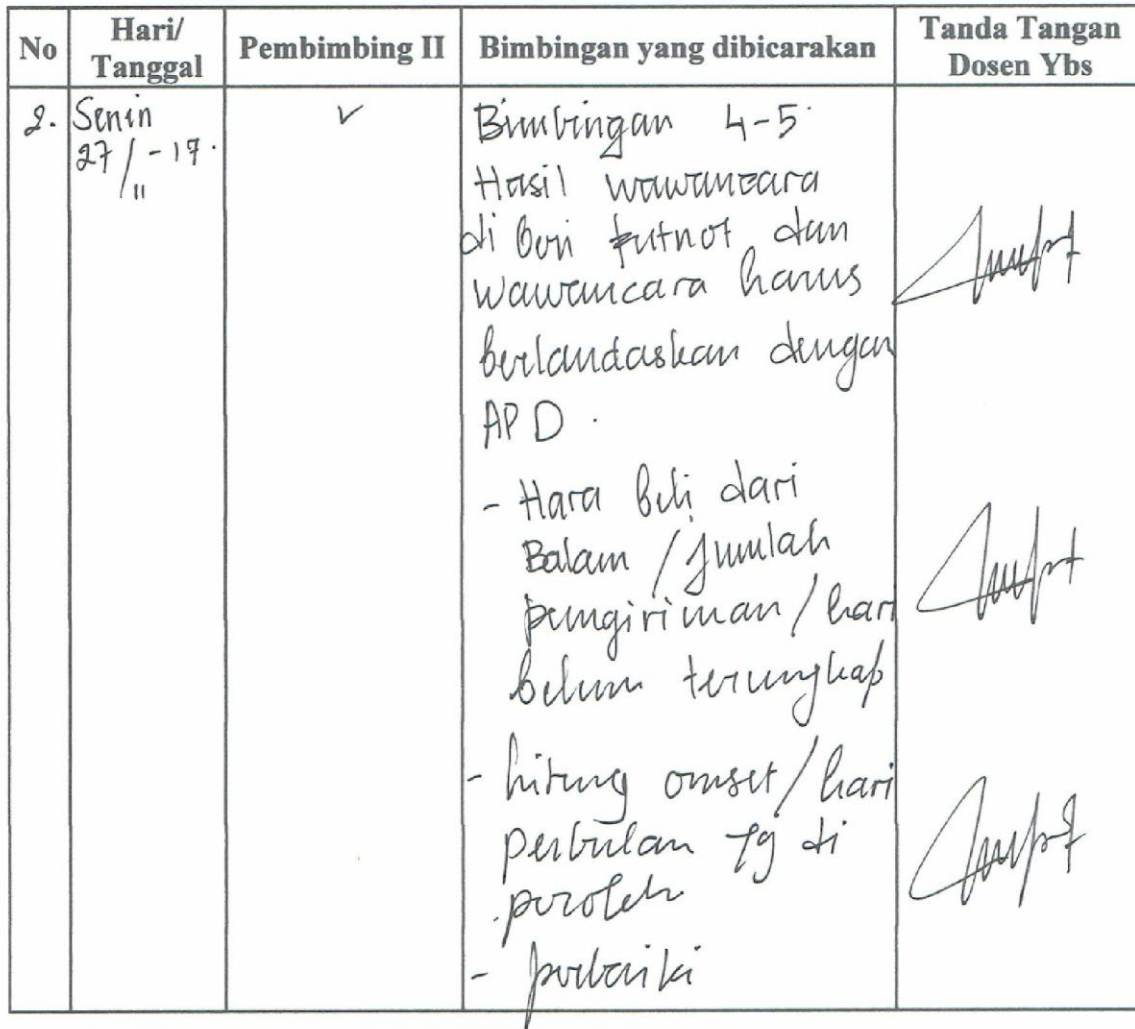 No
Hari/
Tanggal
Pembimbing II
Bimbingan yang dibicarakan
Tanda Tangan
Dosen Ybs
2.
Senin
27/11-17.
✓
Bimbingan 4-5
Hasil wawancara
di beri futnot dan
wawancara harus
berlandaskan dengan
APD.
- Hara beli dari
Balam / Jumlah
pengiriman / hari
belum terungkap
- hitung omset / hari
perbulan yg di
peroleh
- perbaiki